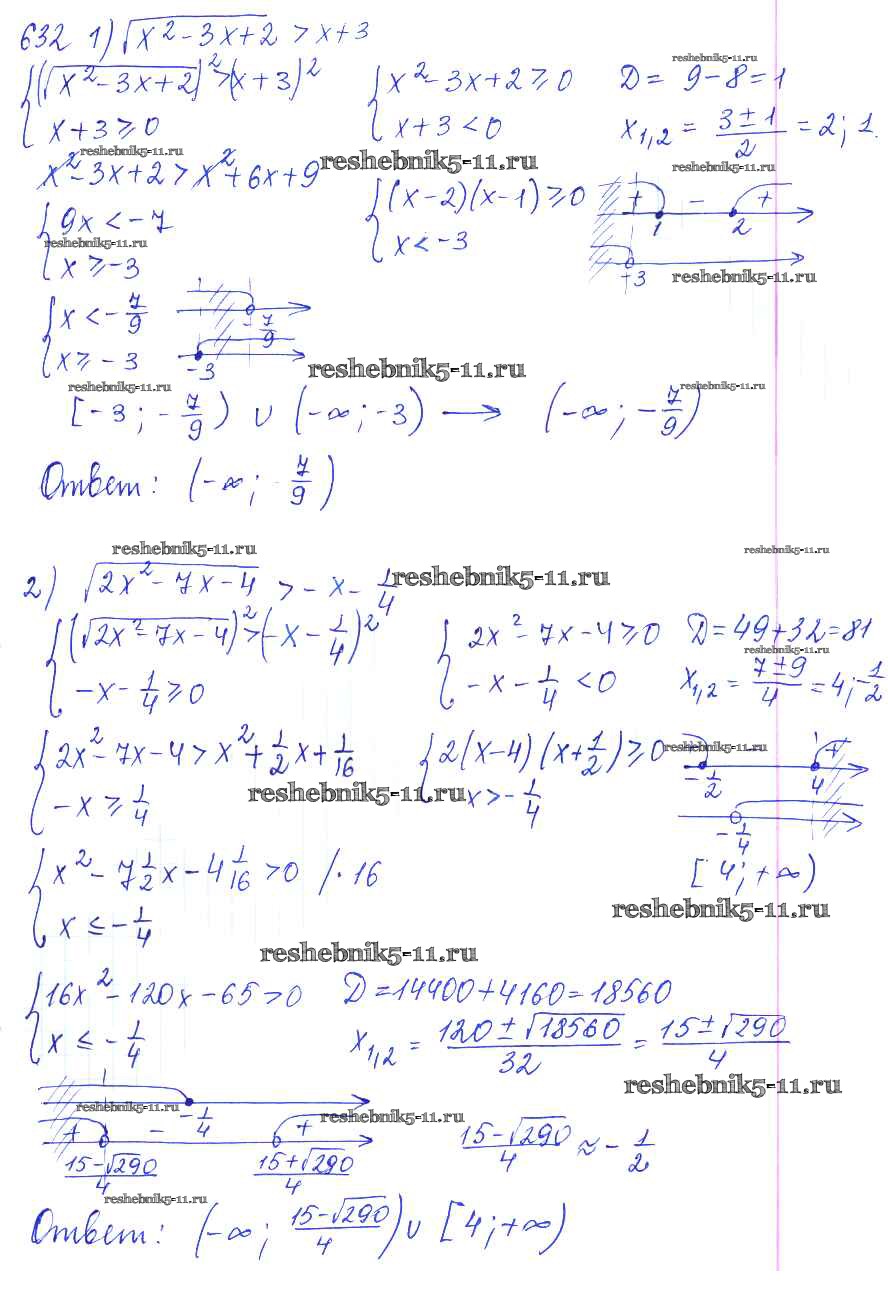 632 1) √(x² - 3x + 2) > x + 3
{ (√(x² - 3x + 2))² > (x + 3)² { x² - 3x + 2 ≥ 0 D = 9 - 8 = 1
x + 3 ≥ 0 x + 3 < 0 x₁,₂ = (3 ± 1)/2 = 2; 1.
reshebnik5-11.ru
reshebnik5-11.ru
reshebnik5-11.ru
reshebnik5-11.ru
x² - 3x + 2 > x² + 6x + 9
{ 9x < -7 { (x - 2)(x - 1) ≥ 0 + - +
1 2
reshebnik5-11.ru
x ≥ -3 x < -3
-3 reshebnik5-11.ru
{ x < -7/9 -7/9
x ≥ -3 -3
reshebnik5-11.ru
reshebnik5-11.ru
reshebnik5-11.ru
[-3; -7/9) ∪ (-∞; -3) → (-∞; -7/9)
Ответ: (-∞; -7/9)
reshebnik5-11.ru
reshebnik5-11.ru
2) √(2x² - 7x - 4) > -x - 1/4
reshebnik5-11.ru
{ (√(2x² - 7x - 4))² > (-x - 1/4)² { 2x² - 7x - 4 ≥ 0 D = 49 + 32 = 81
reshebnik5-11.ru
-x - 1/4 ≥ 0 -x - 1/4 < 0 x₁,₂ = (7 ± 9)/4 = 4; -1/2
{ 2x² - 7x - 4 > x² + 1/2 x + 1/16 { 2(x - 4)(x + 1/2) ≥ 0 +
reshebnik5-11.ru
-1/2 4
-x ≥ 1/4 x > -1/4
reshebnik5-11.ru
-1/4
{ x² - 7 1/2 x - 4 1/16 > 0 /·16 [4; +∞)
x ≤ -1/4
reshebnik5-11.ru
reshebnik5-11.ru
{ 16x² - 120x - 65 > 0 D = 14400 + 4160 = 18560
x ≤ -1/4 x₁,₂ = (120 ± √18560)/32 = (15 ± √290)/4
reshebnik5-11.ru
reshebnik5-11.ru
-1/4
reshebnik5-11.ru
+ - +
(15 - √290)/4 (15 + √290)/4 (15 - √290)/4 ≈ -1/2
reshebnik5-11.ru
Ответ: (-∞; (15 - √290)/4) ∪ [4; +∞)